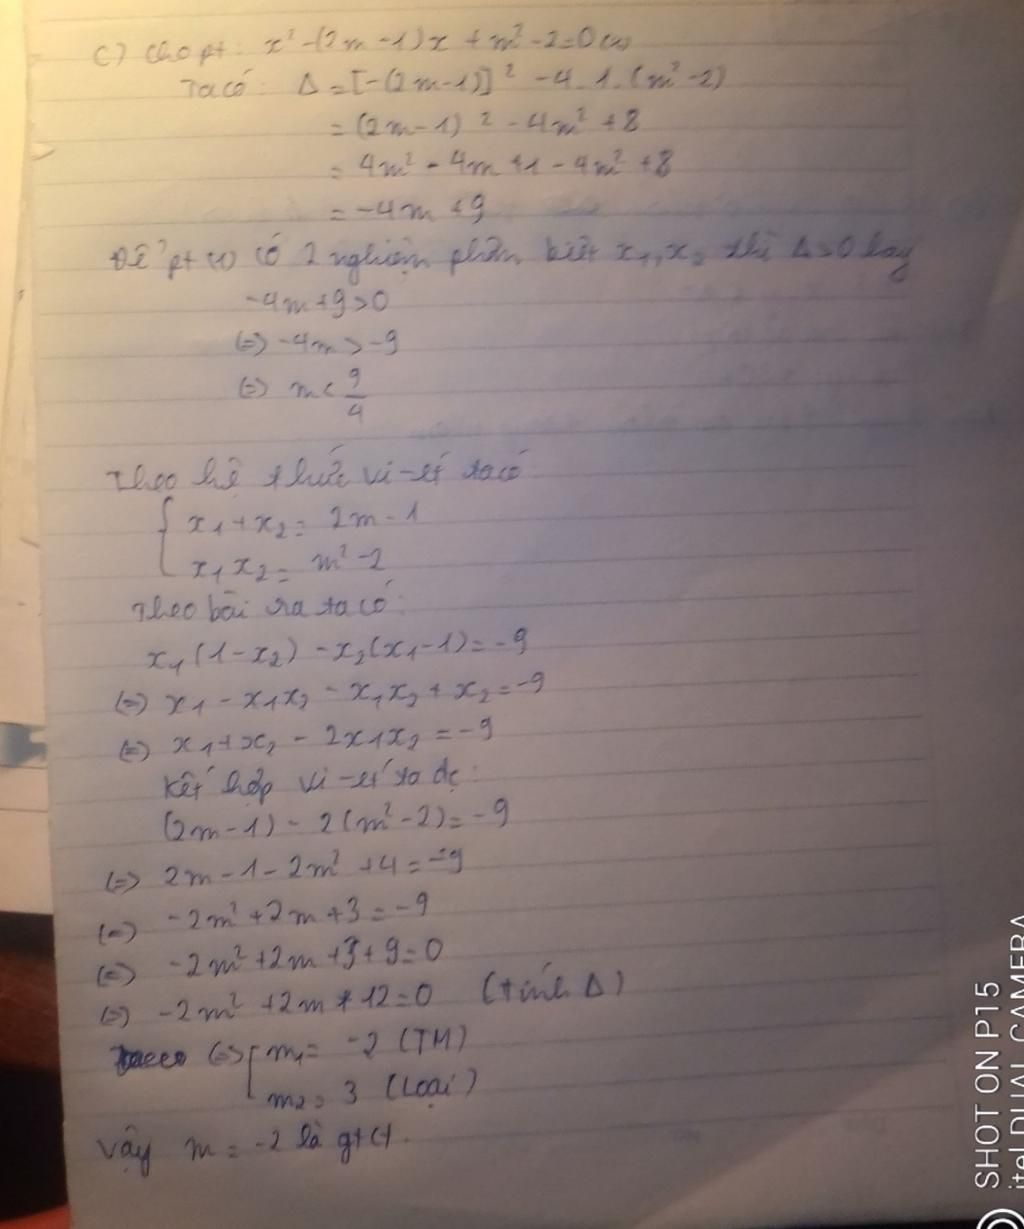 c) Cho pt: x² - (2m - 1)x + m² - 2 = 0 (1)
Ta có: Δ = [-(2m-1)]² - 4.1.(m² - 2)
= (2m - 1)² - 4m² + 8
= 4m² - 4m + 1 - 4m² + 8
= -4m + 9
Để pt (1) có 2 nghiệm phân biệt x₁, x₂ thì Δ > 0 hay
-4m + 9 > 0
(=) -4m > -9
(=) m < 9/4
Theo hệ thức vi-ét ta có
{ x₁ + x₂ = 2m - 1
x₁x₂ = m² - 2
Theo bài ra ta có:
x₁(1 - x₂) - x₂(x₁ - 1) = -9
(=) x₁ - x₁x₂ - x₁x₂ + x₂ = -9
(=) x₁ + x₂ - 2x₁x₂ = -9
Kết hợp vi-ét ta đc:
(2m - 1) - 2(m² - 2) = -9
(=) 2m - 1 - 2m² + 4 = -9
(=) -2m² + 2m + 3 = -9
(=) -2m² + 2m + 3 + 9 = 0
(=) -2m² + 2m + 12 = 0 (tính Δ)
(=) [ m₁ = -2 (TM)
m₂ = 3 (Loại)
Vậy m = -2 là gtct.
SHOT ON P15
itel DUAL CAMERA